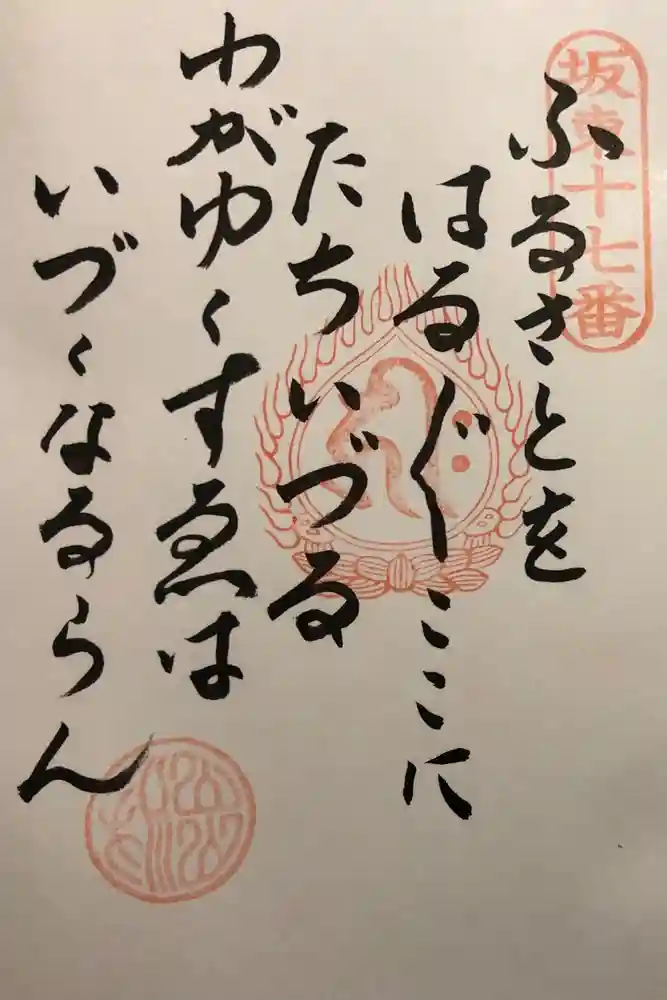 坂東十七番
ふるさとを
はる〲ここに
たちいづる
わがゆくすゑは
いづくなるらん